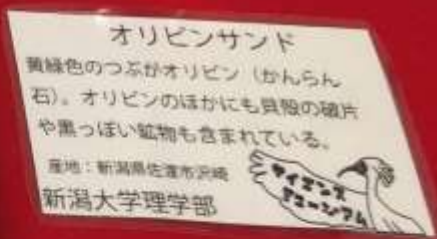 オリビンサンド
黄緑色のつぶがオリビン（かんらん
石）。オリビンのほかにも貝殻の破片
や黒っぽい鉱物も含まれている。
産地：新潟県佐渡市沢崎
新潟大学理学部
サイエンス
ミュージアム